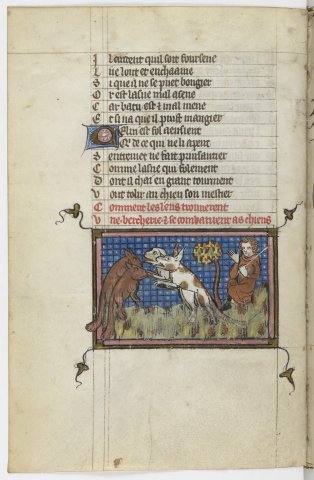 I l cuident quil soit foursene
L ue lont et enchaaine
S i que il ne se puet bougier
O r est lasne mal asene
C ar batu est et mal mene
E t si na que il puist mangier
C Elui est fol a ensient
Q de ce qui ne li apent
S entremet ne fait puisantier
C omme lasne qui folement
D ont il chaï en grant tourment
V out tolir au chien son mestier
C omment les leus trouuerent
V ne bercherie et se combatirent as chiens